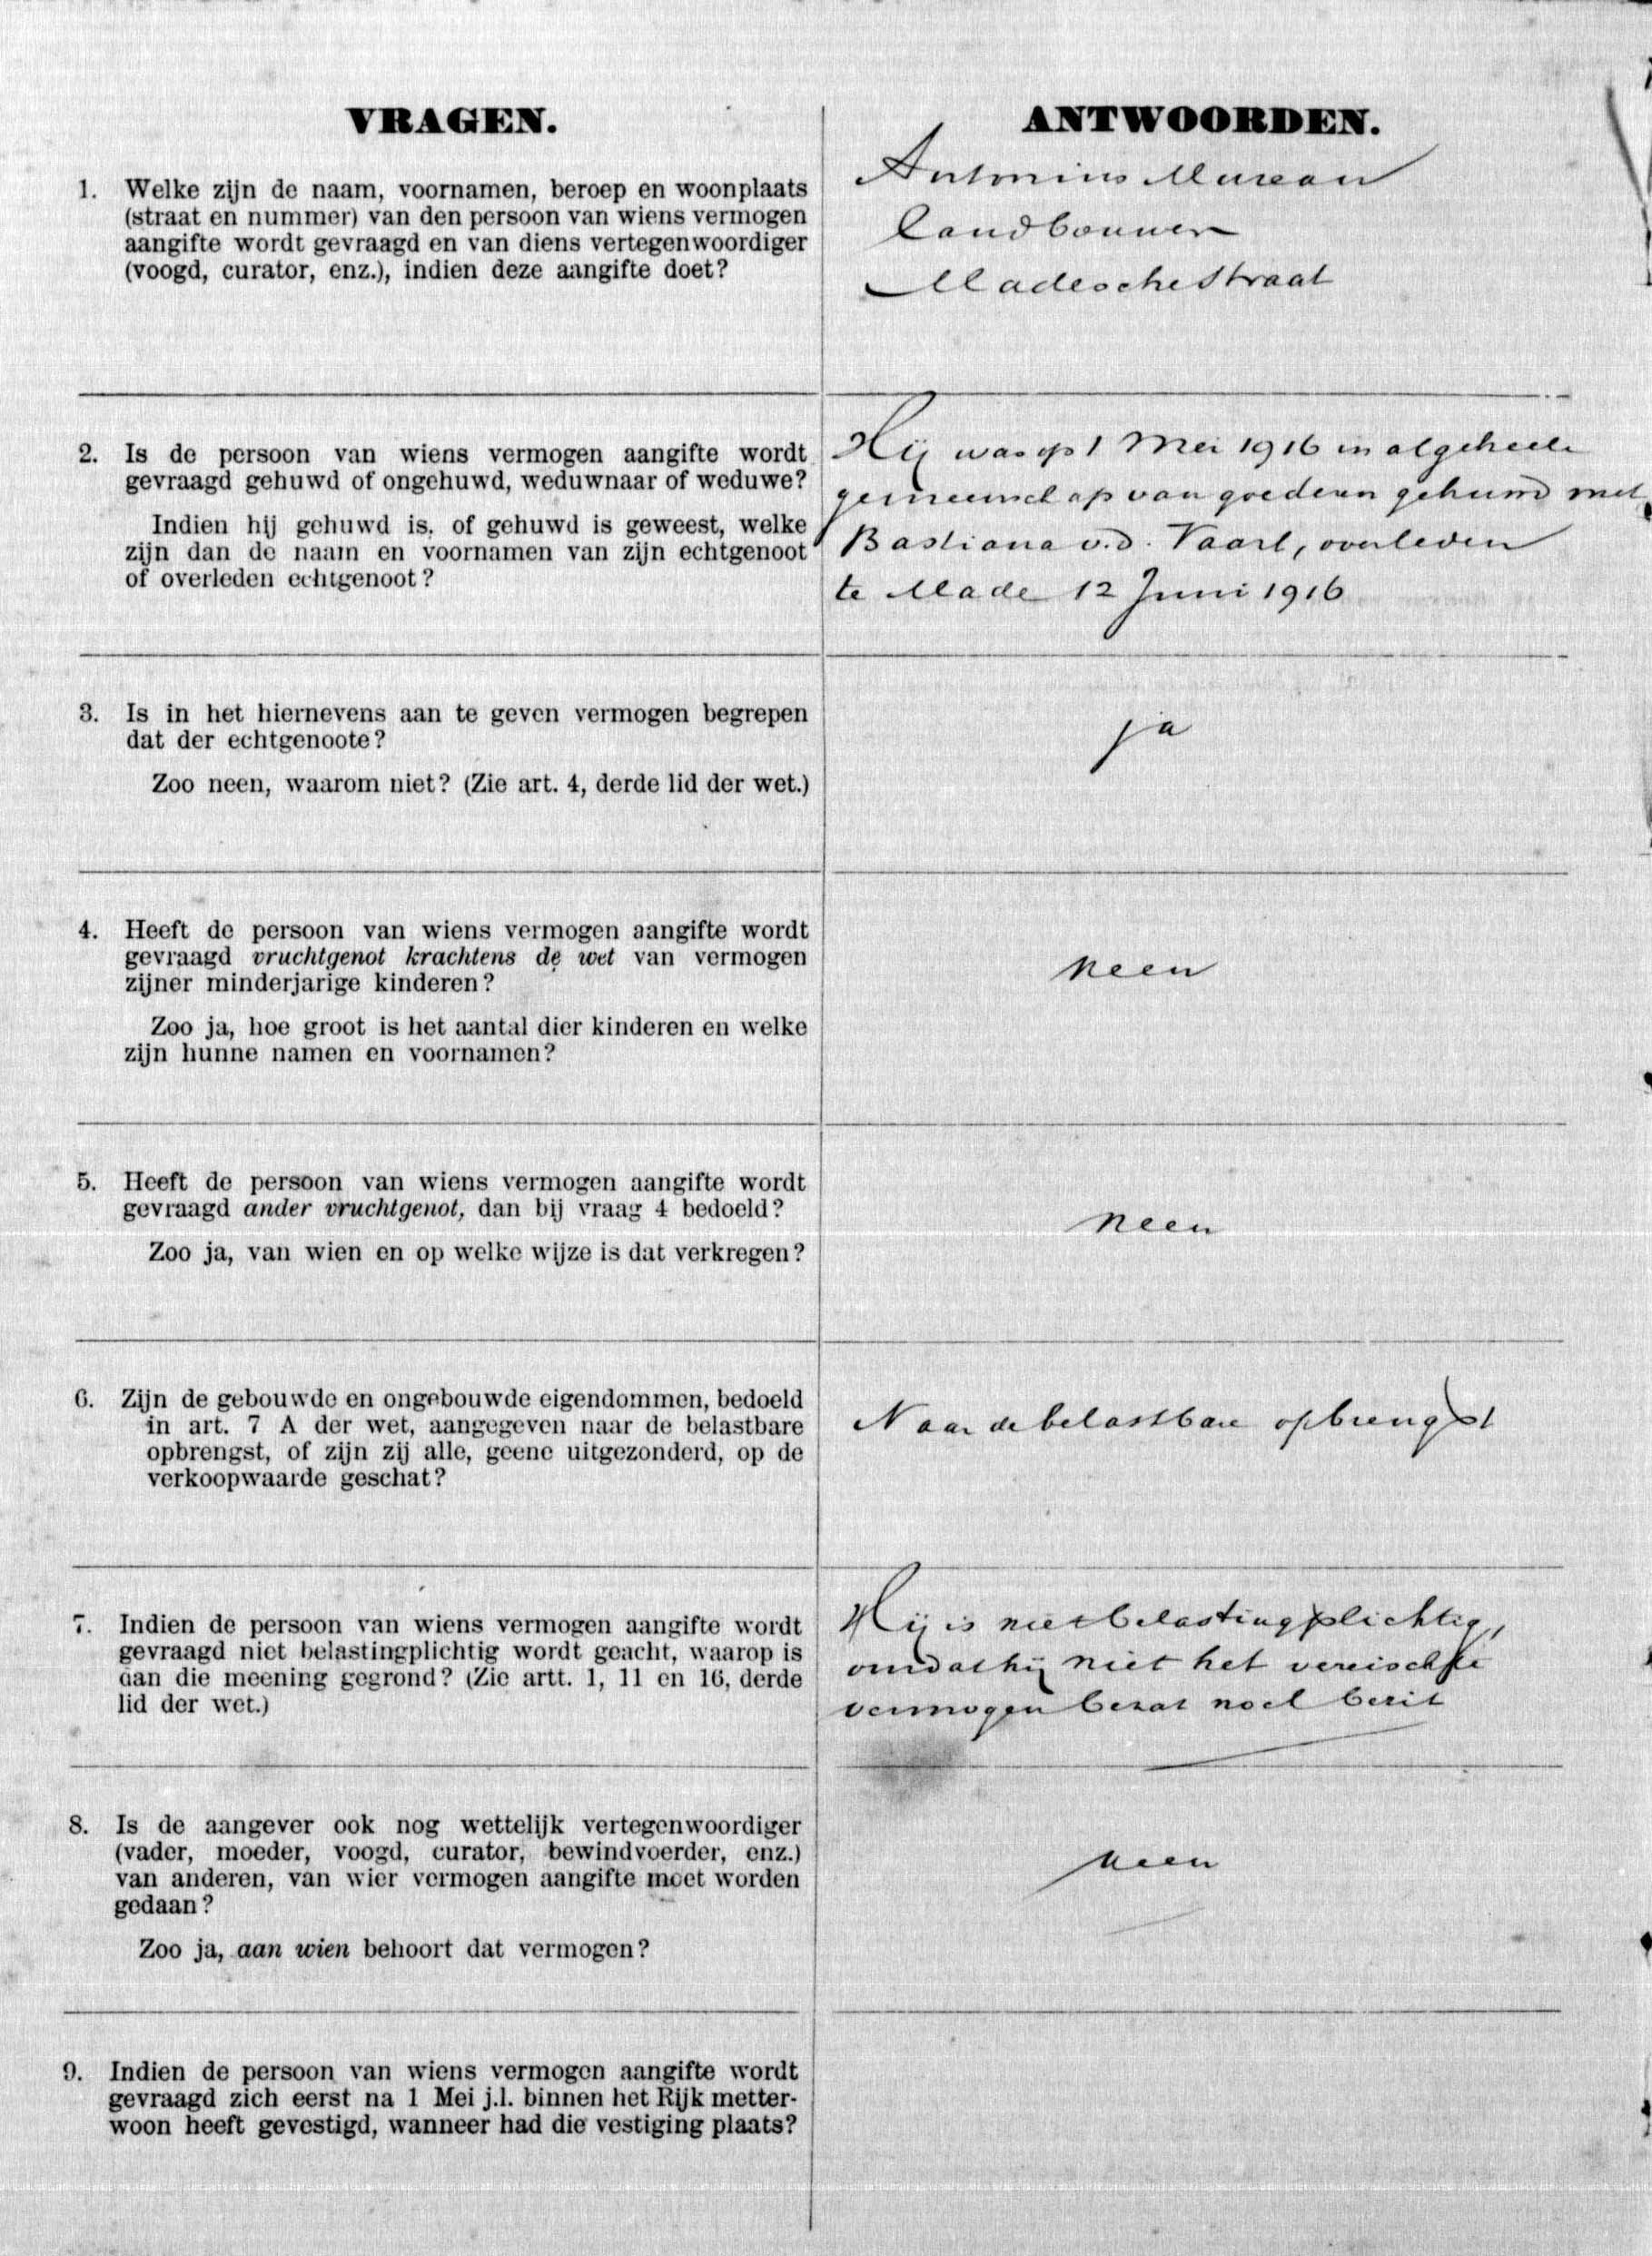 VRAGEN.
ANTWOORDEN.
1. Welke zijn de naam, voornamen, beroep en woonplaats
(straat en nummer) van den persoon van wiens vermogen
aangifte wordt gevraagd en van diens vertegenwoordiger
(voogd, curator, enz.), indien deze aangifte doet?
Antonius Mureau
Landbouwer
Madeschestraat
2. Is de persoon van wiens vermogen aangifte wordt
gevraagd gehuwd of ongehuwd, weduwnaar of weduwe?
Indien hij gehuwd is, of gehuwd is geweest, welke
zijn dan de naam en voornamen van zijn echtgenoot
of overleden echtgenoot?
Hij was op 1 Mei 1916 in algeheele
gemeenschap van goederen gehuwd met
Bastiana v.d. Vaart, overleden
te Made 12 Juni 1916
3. Is in het hiernevens aan te geven vermogen begrepen
dat der echtgenoote?
Zoo neen, waarom niet? (Zie art. 4, derde lid der wet.)
ja
4. Heeft de persoon van wiens vermogen aangifte wordt
gevraagd vruchtgenot krachtens de wet van vermogen
zijner minderjarige kinderen?
Zoo ja, hoe groot is het aantal dier kinderen en welke
zijn hunne namen en voornamen?
neen
5. Heeft de persoon van wiens vermogen aangifte wordt
gevraagd ander vruchtgenot, dan bij vraag 4 bedoeld?
Zoo ja, van wien en op welke wijze is dat verkregen?
neen
6. Zijn de gebouwde en ongebouwde eigendommen, bedoeld
in art. 7 A der wet, aangegeven naar de belastbare
opbrengst, of zijn zij alle, geene uitgezonderd, op de
verkoopwaarde geschat?
Naar de belastbare opbrengst
7. Indien de persoon van wiens vermogen aangifte wordt
gevraagd niet belastingplichtig wordt geacht, waarop is
dan die meening gegrond? (Zie artt. 1, 11 en 16, derde
lid der wet.)
Hij is niet belastingplichtig,
omdat hij niet het vereischte
vermogen bezat noch bezit
8. Is de aangever ook nog wettelijk vertegenwoordiger
(vader, moeder, voogd, curator, bewindvoerder, enz.)
van anderen, van wier vermogen aangifte moet worden
gedaan?
Zoo ja, aan wien behoort dat vermogen?
neen
9. Indien de persoon van wiens vermogen aangifte wordt
gevraagd zich eerst na 1 Mei j.l. binnen het Rijk metter-
woon heeft gevestigd, wanneer had die vestiging plaats?